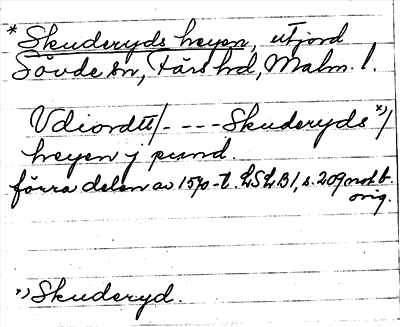 * Skuderyds heyen, utjord
Sövde sn, Färs hd, Malm. l.
Vdiordtt/- - - - Skuderyds *)/
heyen j pund.
förra delen av 1570-t. LSLB1, s. 209 not b.
orig.
*) Skuderyd.